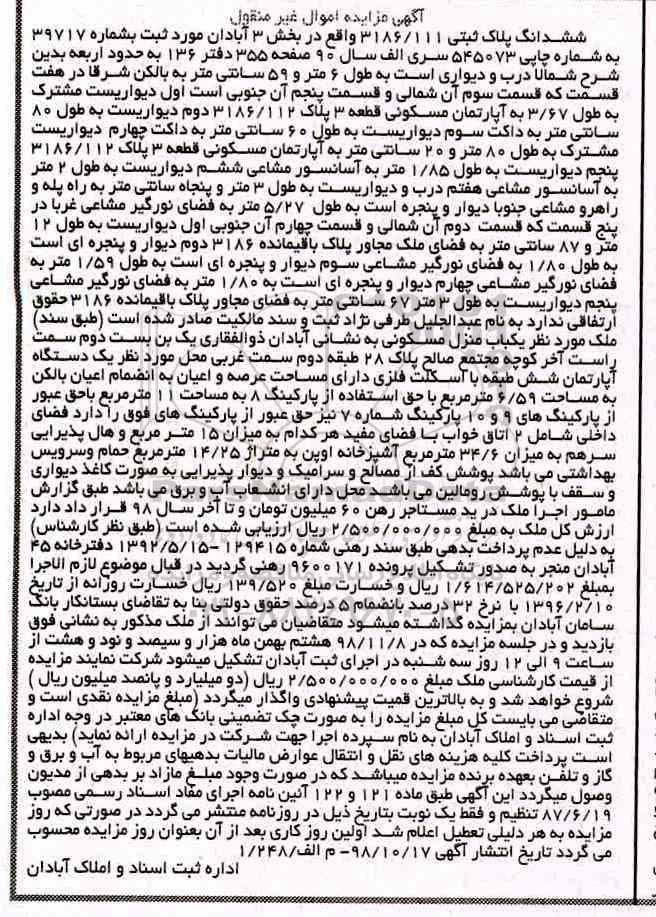 آگهی مزایده اموال غیر منقول
ششدانگ پلاک ثبتی ۳۱۸۶/۱۱۱ واقع در بخش ۳ آبادان مورد ثبت بشماره ۳۹۷۱۷
به شماره چاپی ۵۴۵۰۷۳ سری الف سال ۹۰ صفحه ۳۵۵ دفتر ۱۳۶ به حدود اربعه بدین
شرح شمالا درب و دیواری است به طول ۶ متر و ۵۹ سانتی متر به بالکن شرقا در هفت
قسمت که قسمت سوم آن شمالی و قسمت پنجم آن جنوبی است اول دیواریست مشترک
به طول ۳/۶۷ به آپارتمان مسکونی قطعه ۳ پلاک ۳۱۸۶/۱۱۲ دوم دیواریست به طول ۸۰
سانتی متر به داکت سوم دیواریست به طول ۶۰ سانتی متر به داکت چهارم دیواریست
مشترک به طول ۸۰ متر و ۲۰ سانتی متر به آپارتمان مسکونی قطعه ۳ پلاک ۳۱۸۶/۱۱۲
پنجم دیواریست به طول ۱/۸۵ متر به آسانسور مشاعی ششم دیواریست به طول ۲ متر
به آسانسور مشاعی هفتم درب و دیواریست به طول ۳ متر و پنجاه سانتی متر به راه پله و
راهرو مشاعی جنوبا دیوار و پنجره است به طول ۵/۲۷ متر به فضای نورگیر مشاعی غربا در
پنج قسمت که قسمت دوم آن شمالی و قسمت چهارم آن جنوبی اول دیواریست به طول ۱۲
متر و ۸۷ سانتی متر به فضای ملک مجاور پلاک باقیمانده ۳۱۸۶ دوم دیوار و پنجره ای است
به طول ۱/۸۰ به فضای نورگیر مشاعی سوم دیوار و پنجره ای است به طول ۱/۵۹ متر به
فضای نورگیر مشاعی چهارم دیوار و پنجره ای است به ۱/۸۰ متر به فضای نورگیر مشاعی
پنجم دیواریست به طول ۳ متر ۶۷ سانتی متر به فضای مجاور پلاک باقیمانده ۳۱۸۶ حقوق
ارتفاقی ندارد به نام عبدالجلیل طرفی نژاد ثبت و سند مالکیت صادر شده است (طبق سند)
ملک مورد نظر یکباب منزل مسکونی به نشانی آبادان ذوالفقاری یک بن بست دوم سمت
راست آخر کوچه مجتمع صالح پلاک ۲۸ طبقه دوم سمت غربی محل مورد نظر یک دستگاه
آپارتمان شش طبقه با اسکلت فلزی دارای مساحت عرصه و اعیان به انضمام اعیان بالکن
به مساحت ۶/۵۹ مترمربع با حق استفاده از پارکینگ ۸ به مساحت ۱۱ مترمربع باحق عبور
از پارکینگ های ۹ و ۱۰ پارکینگ شماره ۷ نیز حق عبور از پارکینگ های فوق را دارد فضای
داخلی شامل ۲ اتاق خواب با فضای مفید هر کدام به میزان ۱۵ متر مربع و هال پذیرایی
سرهم به میزان ۳۴/۶ مترمربع آشپزخانه اوپن به متراژ ۱۴/۲۵ مترمربع حمام وسرویس
بهداشتی می باشد پوشش کف از مصالح و سرامیک و دیوار پذیرایی به صورت کاغذ دیواری
و سقف با پوشش رومالین می باشد محل دارای انشعاب آب و برق می باشد طبق گزارش
مامور اجرا ملک در ید مستاجر رهن ۶۰ میلیون تومان و تا آخر سال ۹۸ قرار داد دارد
ارزش کل ملک به مبلغ ۲/۵۰۰/۰۰۰/۰۰۰ ریال ارزیابی شده است (طبق نظر کارشناس)
به دلیل عدم پرداخت بدهی طبق سند رهنی شماره ۱۲۹۴۱۵-۱۳۹۲/۵/۱۵ دفترخانه ۴۵
آبادان منجر به صدور تشکیل پرونده ۹۶۰۰۱۷۱ رهنی گردید در قبال موضوع لازم الاجرا
بمبلغ ۱/۶۱۴/۵۲۵/۲۰۲ ریال و خسارت مبلغ ۱۳۹/۵۲۰ ریال خسارت روزانه از تاریخ
۱۳۹۶/۲/۱۰ با نرخ ۳۲ درصد بانضمام ۵ درصد حقوق دولتی بنا به تقاضای بستانکار بانک
سامان آبادان بمزایده گذاشته میشود متقاضیان می توانند از ملک مذکور به نشانی فوق
بازدید و در جلسه مزایده که در ۹۸/۱۱/۸ هشتم بهمن ماه هزار و سیصد و نود و هشت از
ساعت ۹ الی ۱۲ روز سه شنبه در اجرای ثبت آبادان تشکیل میشود شرکت نمایند مزایده
از قیمت کارشناسی ملک مبلغ ۲/۵۰۰/۰۰۰/۰۰۰ ریال (دو میلیارد و پانصد میلیون ریال )
شروع خواهد شد و به بالاترین قمیت پیشنهادی واگذار میگردد (مبلغ مزایده نقدی است و
متقاضی می بایست کل مبلغ مزایده را به صورت چک تضمینی بانک های معتبر در وجه اداره
ثبت اسناد و املاک آبادان به نام سپرده اجرا جهت شرکت در مزایده ارائه نماید) بدیهی
است پرداخت کلیه هزینه های نقل و انتقال عوارض مالیات بدهیهای مربوط به آب و برق و
گاز و تلفن بعهده برنده مزایده میباشد که در صورت وجود مبلغ مازاد بر بدهی از مدیون
وصول میگردد این آگهی طبق ماده ۱۲۱ و ۱۲۲ آئین نامه اجرای مفاد اسناد رسمی مصوب
۸۷/۶/۱۹ تنظیم و فقط یک نوبت بتاریخ ذیل در روزنامه منتشر می گردد در صورتی که روز
مزایده به هر دلیلی تعطیل اعلام شد اولین روز کاری بعد از آن بعنوان روز مزایده محسوب
می گردد تاریخ انتشار آگهی ۹۸/۱۰/۱۷- م الف/۱/۲۴۸
اداره ثبت اسناد و املاک آبادان